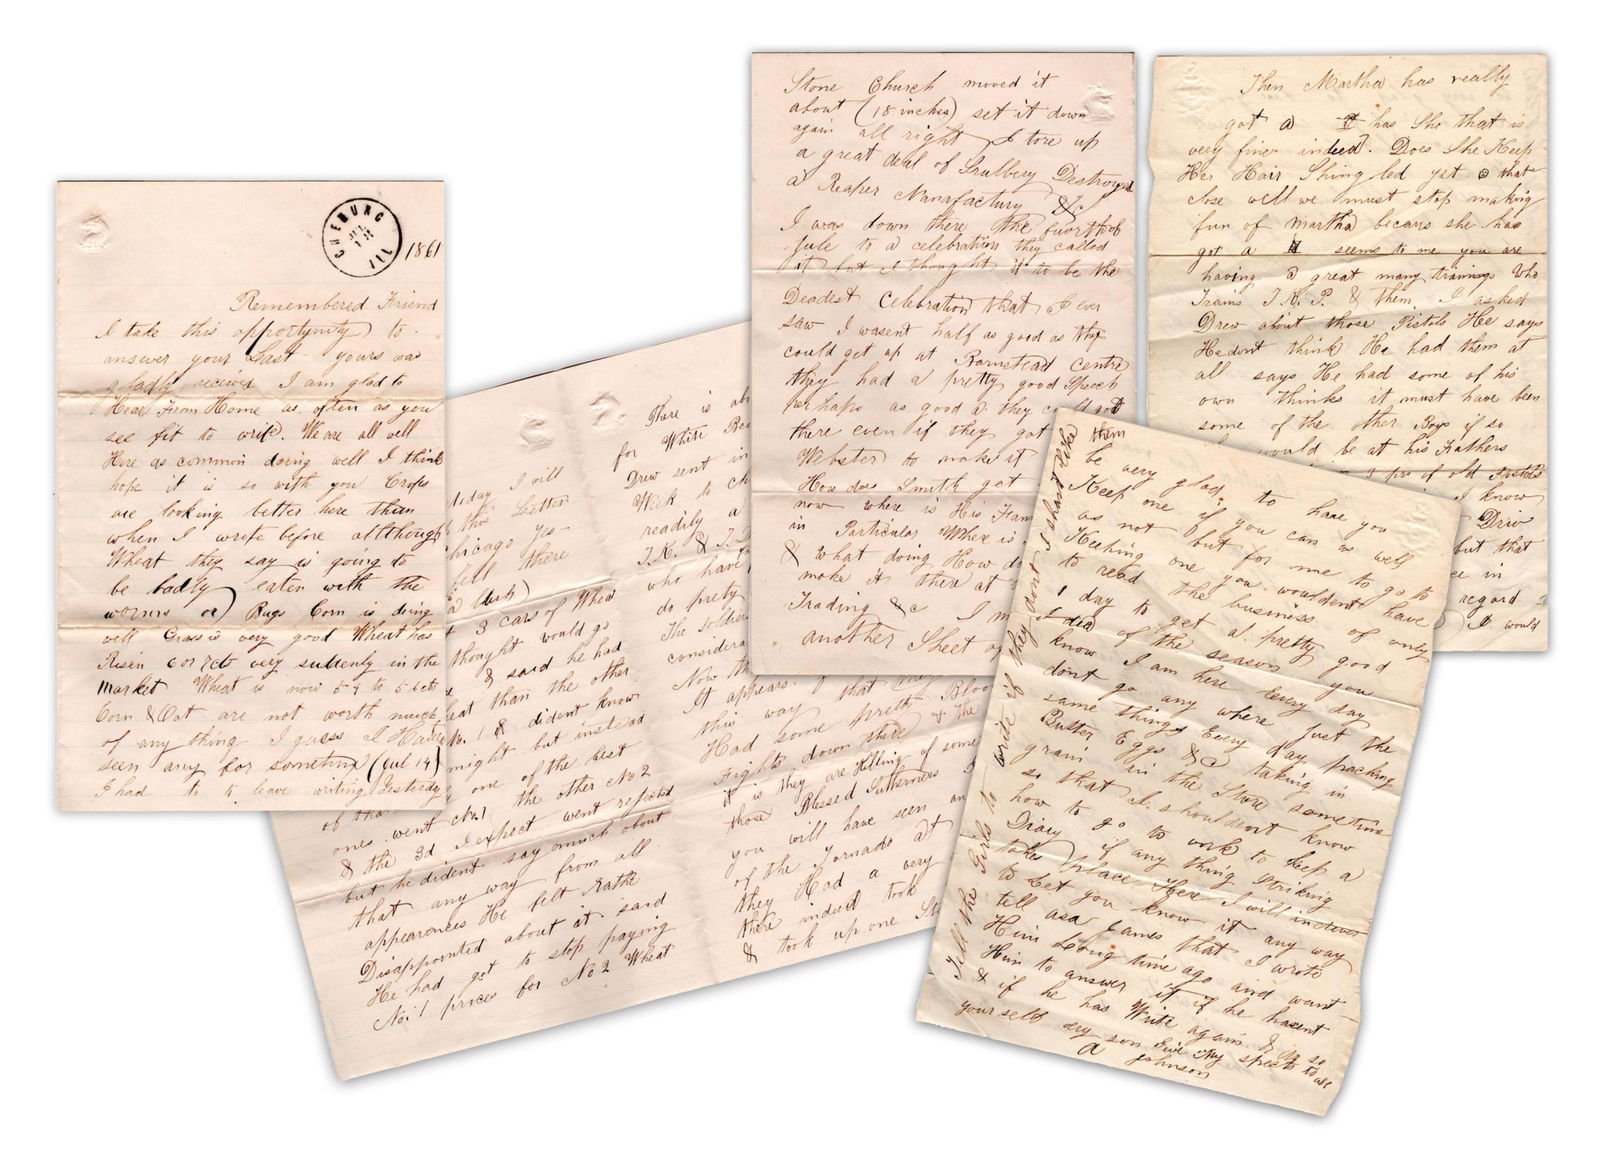 CHEBUNG
JUL
18
ILL
1861
Remembered Friend
I take this opportynity to
answer your Last yours was
gladly reciev I am glad to
Hear From Home as often as you
see fit to write. We are all well
Here as common doing well I think
hope it is so with you Crops
are looking better here than
when I write before allthough
Wheat they say is going to
be badly eaten with the
worms or) Bugs Corn is doing
well Grass is very good Wheat has
Risen 6 or 7cts very suttenly in the
market Wheat is now 54 to 56 cts
Corn & Oat are not worth much
of any thing I guess I Have
seen any for sometime (Jul 19)
I had to leave writing Yesterdy
today I will
this Letter
Chicago Yes-
fell there
3 cars of Wheat
thought would go
& said he had
than the other
No. 1 & dident know
might but instead
of that one of the best
ones went No.1 the other No 2
& the 3d I expect went rejected
but he dident say much about
that any way from all
appearences He felt Rathe
Disappointed about it said
He had got to stop paying
No. 1 prices for No 2 Wheat
There is abo
for White Bea
Drew sent in
Week to Ch
readily a
J.K. & J.D
who have
do pretty
The soldier
considera
Now th
It appears
this way that
Had some pretty Bloo
Fights down there & the
is they are Killing of some
those Blessed Sutherners
you will have seen an
of the Tornado at
they Had a very
there indeed took
& took up one St
Stone Church moved it
about (18 inches) set it down
again all right I tore up
a great deal of Srulbery Destroyd
a Reaper Manafactury &c
I was down there the fourth of
July to a celebration they called
it but I thought it to be the
Deadest Celebration that I ever
saw I wasent half as good as they
could get up at Ramstead centre
they had a pretty good Speech
perhaps as good as they could get
there even if they got
Webster to make it
How does Smith get
now where is His Fam
in Particular Where is
& what doing How d
make it there at
Trading &c I m
another Sheet o
Then Martha has really
got a has She that is
very fine indeed. Does She Keep
Her Hair Shingled yet & that
close well we must stop making
fun of Martha becaus she has
got a seems to me you are
having a great many trainings Who
Trains J.K.P. & them. I asked
Drew about those Pistols He says
He dont think He had them at
all says He had some of his
own thinks it must have been
some of the other Boys if so
would be at his Fathers
3 pr of old Pistols
I know
Drew
but that
in
regard
I would
be very glad to have you
Keep one if you can as well
as not but for me to go to
Keeking one you wouldent have
to read the business of only
1 day to get a pretty good
Idea of the season you
know I am here Every day
dont go any where Just the
same things Every day packing
Butter Eggs &c taking in
grain in the Store sometime
so that I shouldent know
how to go to work to keep a
Diary if any thing Striking
takes place Here I will
to Let you know it any way
tell asa James that I wrote
Him Long time ago and want
Him to answer it if he hasent
& if he has Write again. & do so
yourself very soon Give my spects to all
A Johnson
Tell the Girls to write if they dont I shant like them